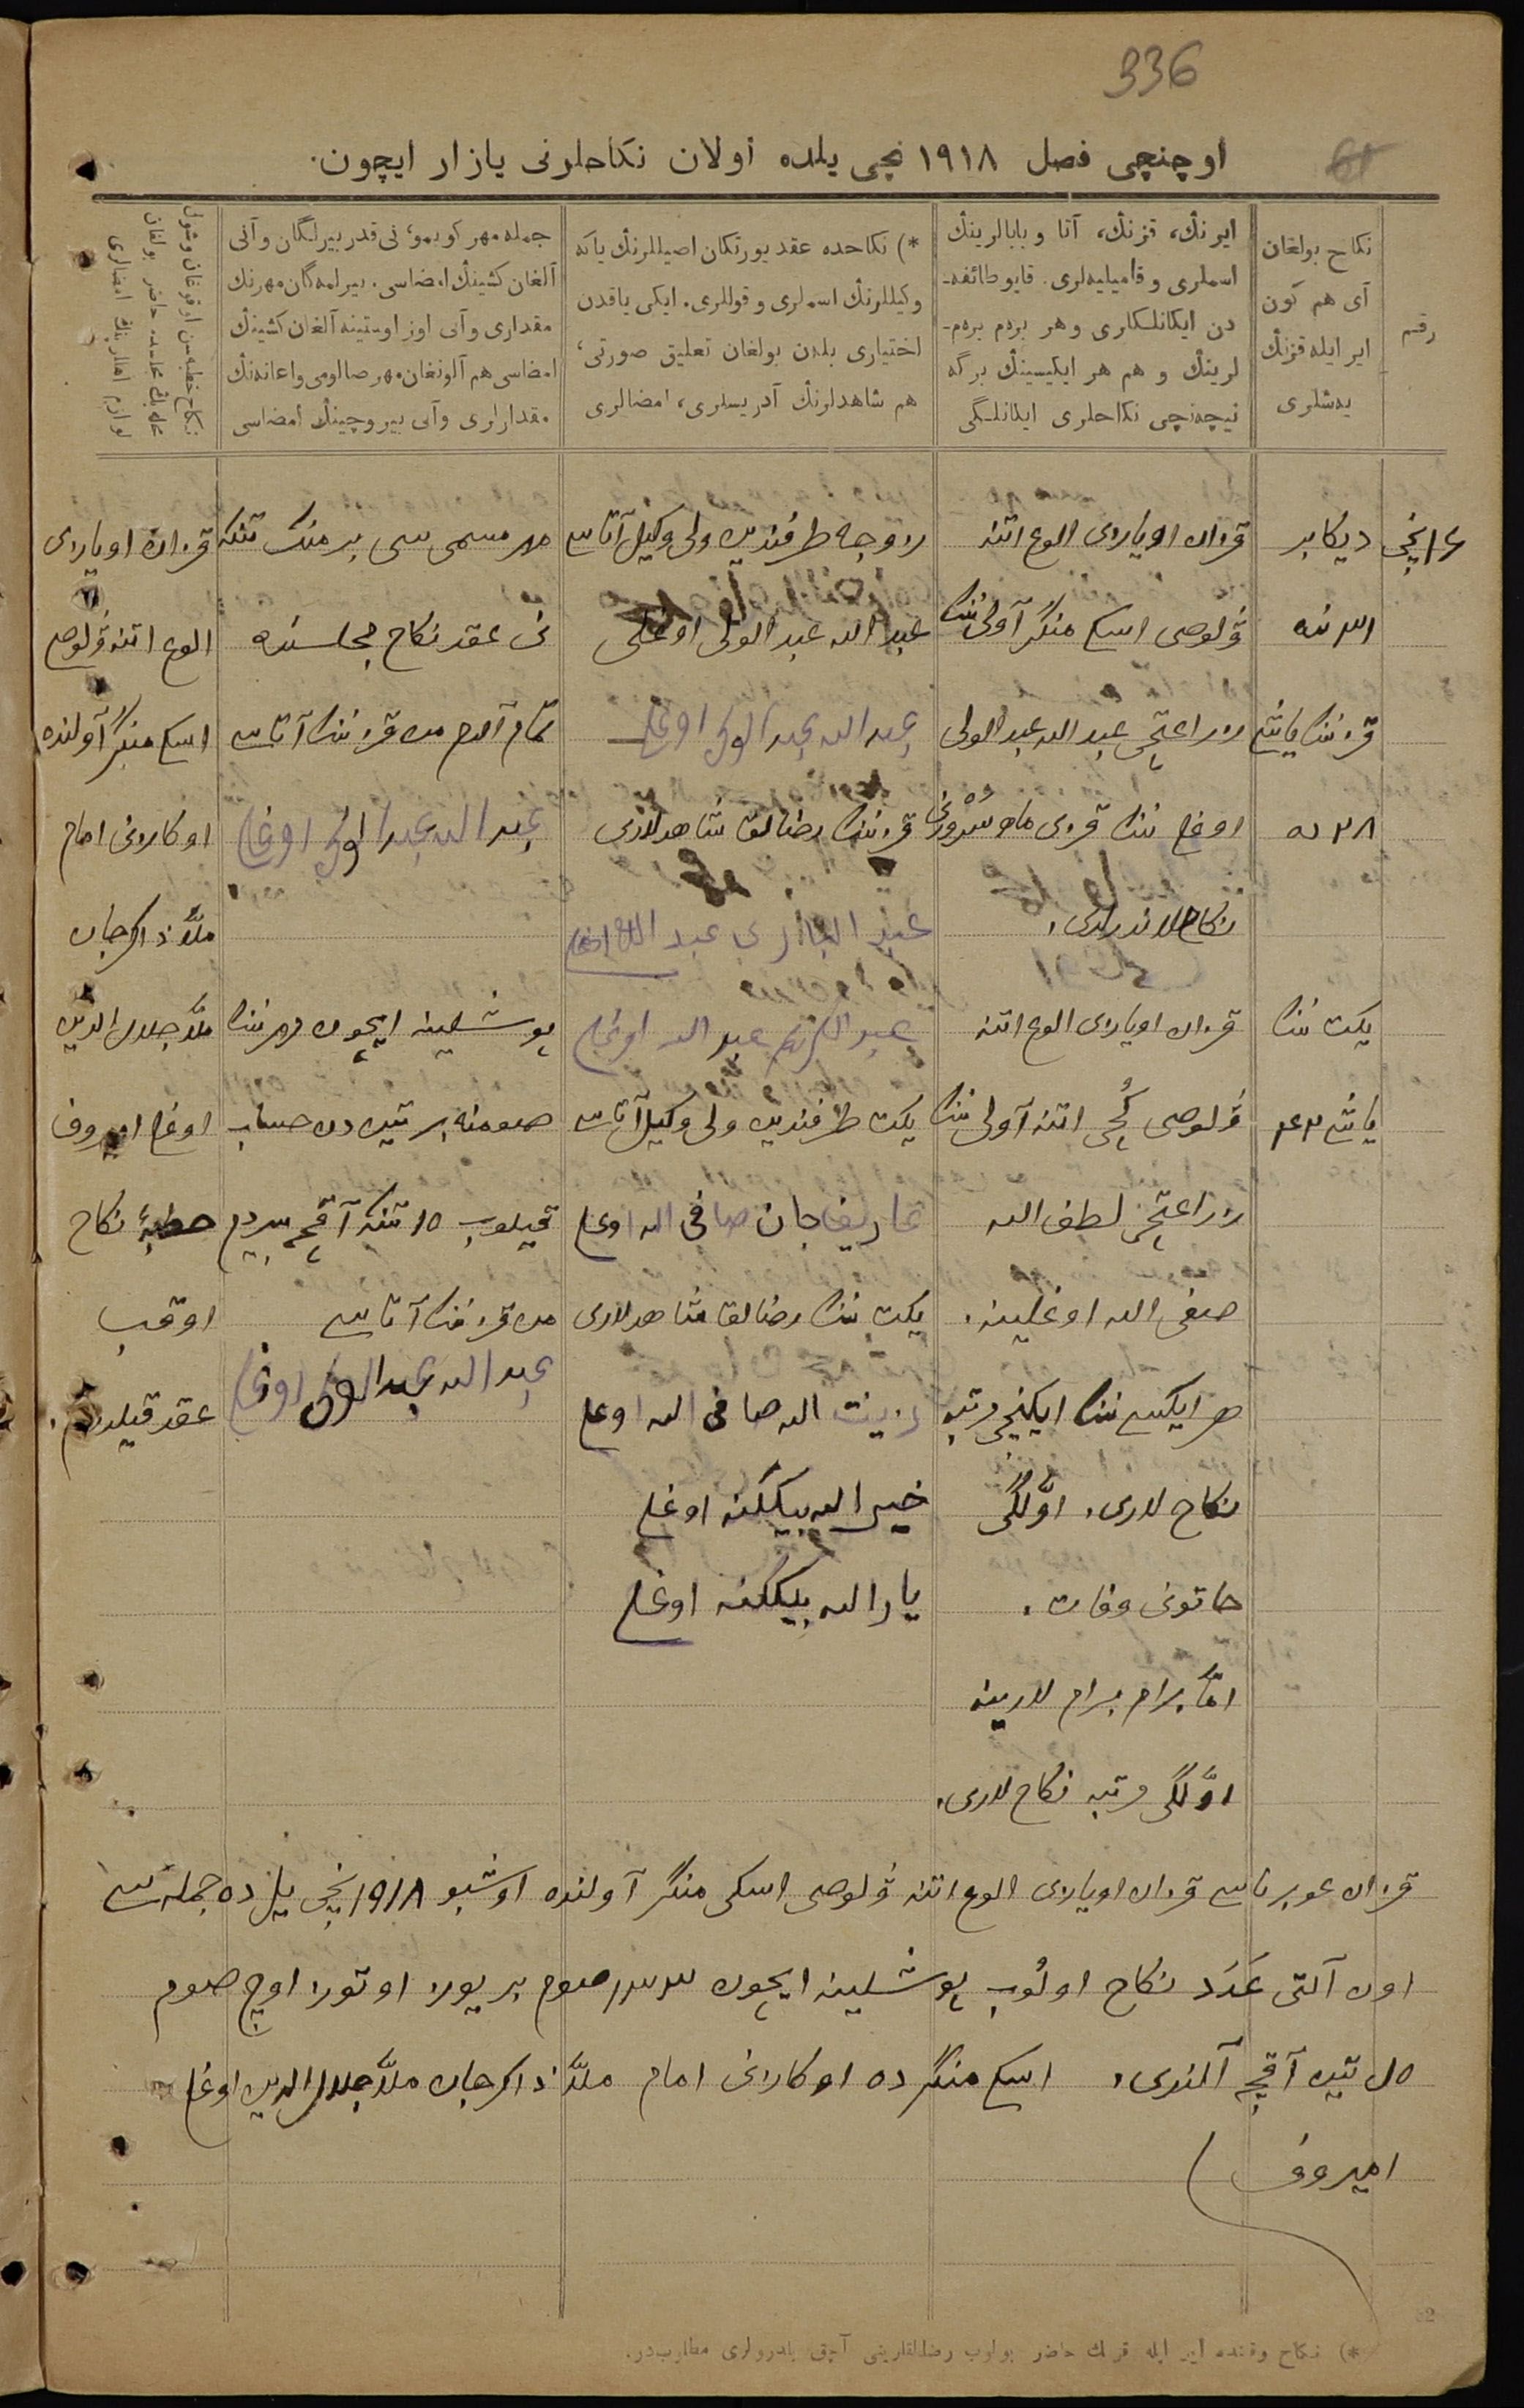 336
61
اوچنچی فصل ١٩١٨ نچی یلده اولان نكاحلرنی یازار ایچون.
رقم
نكاح بولغان
آی هم كون
ایر ایله قزنڭ
یەشلری
ایرنڭ، قزنڭ، آتا و بابالرینڭ
اسملری و فامیلیەلری. قایو طائفه-
دن ایكانلكلری و هر بردم بردم-
لرینڭ و هم هر ایكیسینڭ برگه
نیچەنچی نكاحلری ایكانلگی
*) نكاحده عقد یورتكان اصیللرنڭ یاكه
وكیللرنڭ اسملری و قوللری. ایكی یاقدن
اختیاری بلەن بولغان تعلیق صورتی،
هم شاهدلرنڭ آدریسلری، امضالری
جمله مهر كوبمو، نی قدر بیرلگان و آنی
آلغان كشینڭ امضاسی. بیرلمەگان مهرنڭ
مقداری و آنی اوز اوستینه آلغان كشینڭ
امضاسی هم آلونغان مهر صالومی و اعانەنڭ
مقدارلری و آنی بیروچینڭ امضاسی
نكاح خطبەسن اوقوغان و شول
١٦نچی
دیكابر
٣١ نده
قزننڭ یاشی
٢٨ ده
یكت ننڭ
یاشی ٤٣
قزان اویازی الوغ اتنه
ۋلوصی اسكی منگر آولی ننڭ
زراعتچی عبد الله عبد الولی
اوغلی ننڭ قزی ماه سرورنی
نكاحلاندرلدی.
قزان اویازی الوغ اتنه
ۋلوصی كچی اتنه آولی ننڭ
زراعتچی لطف الله
صفی الله اوغلینه.
هر ایكسی ننڭ ایكنچی مرتبه
نكاح لاری. اوّلگی
خاتونی وفات.
امّا برام برام لارینه
اوّلگی مرتبه نكاح لاری.
زوجه طرفندین ولی وكیل آتاسی
عبد الله عبد الولی اوغلی
عبد الله عبد الولی اوغلی
قزننڭ رضالقا شاهدلاری
عبد الباری عبد الله اوغلی
عبد الكریم عبد الله اوغلی
یكت طرفندین ولی وكیل آتاسی
عاریفجان صافی الله اوغلی
یكت ننڭ رضالقا شاهدلاری
زینت الله صافی الله اوغلی
خیر الله بیككنه اوغلی
یار الله بیككنه اوغلی
مهر مسمی سی بر منڭ تنكه
نی عقد نكاح مجلسنده
تمام آلدم من قزننڭ آتاسی
عبد الله عبد الولی اوغلی
پوشلینه ایچون مهرننڭ
صومنه بر تین دن حساب
قیلوب ١٥ تنكه آقچه بیردم
من قزننڭ آتاسی
عبد الله عبد الولی اوغلی
قزان اویازی
الوغ اتنه ۋلوصی
اسكی منگر آولنده
اوكازنی امام
ملّا ذاكرجان
ملّا جلال الدین
اوغلی امیروف
خطبهٔ نكاح
اوقوب
عقد قیلدم.
قزان غوبرناسی قزان اویازی الوغ اتنه ۋلوصی اسكی منگر آولنده اوشبو ١٩١٨نچی یل ده جملەسی
اون آلتی عَدَد نكاح اولُوب پوشلینه ایچون ١٣٣ صوم بر یوز اوتوز اوچ صوم
٥١ تین آقچه آلندی. اسكی منگرده اوكازنی امام ملّا ذاكرجان ملّا جلال الدین اوغلی
امیروف
*) نكاح وقتنده ایر ایله قزنڭ حاضر بولوب رضالقلارینی آچق بلدرولری مطلوبدر.